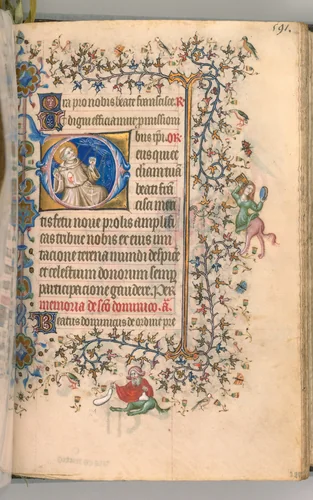 691.
Ora pro nobis beate francisce. R
Ut digni efficiamur promissioni
bus xpi. Or
eus qui ec
clam tuā
beati frā
cisci meri
tis fetu noue prolis amplifi
cas tribue nobis ex eius im
tacione terrena mundi despice
et celestium donorum semp
participacione gaudere. Per
memoria de sco dominico. a.
Beatus dominicus de ordine pre